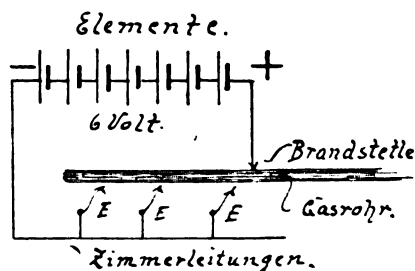 Elemente.
– +
6 Volt.
Brandstelle
E E E
Gasrohr.
Zimmerleitungen.